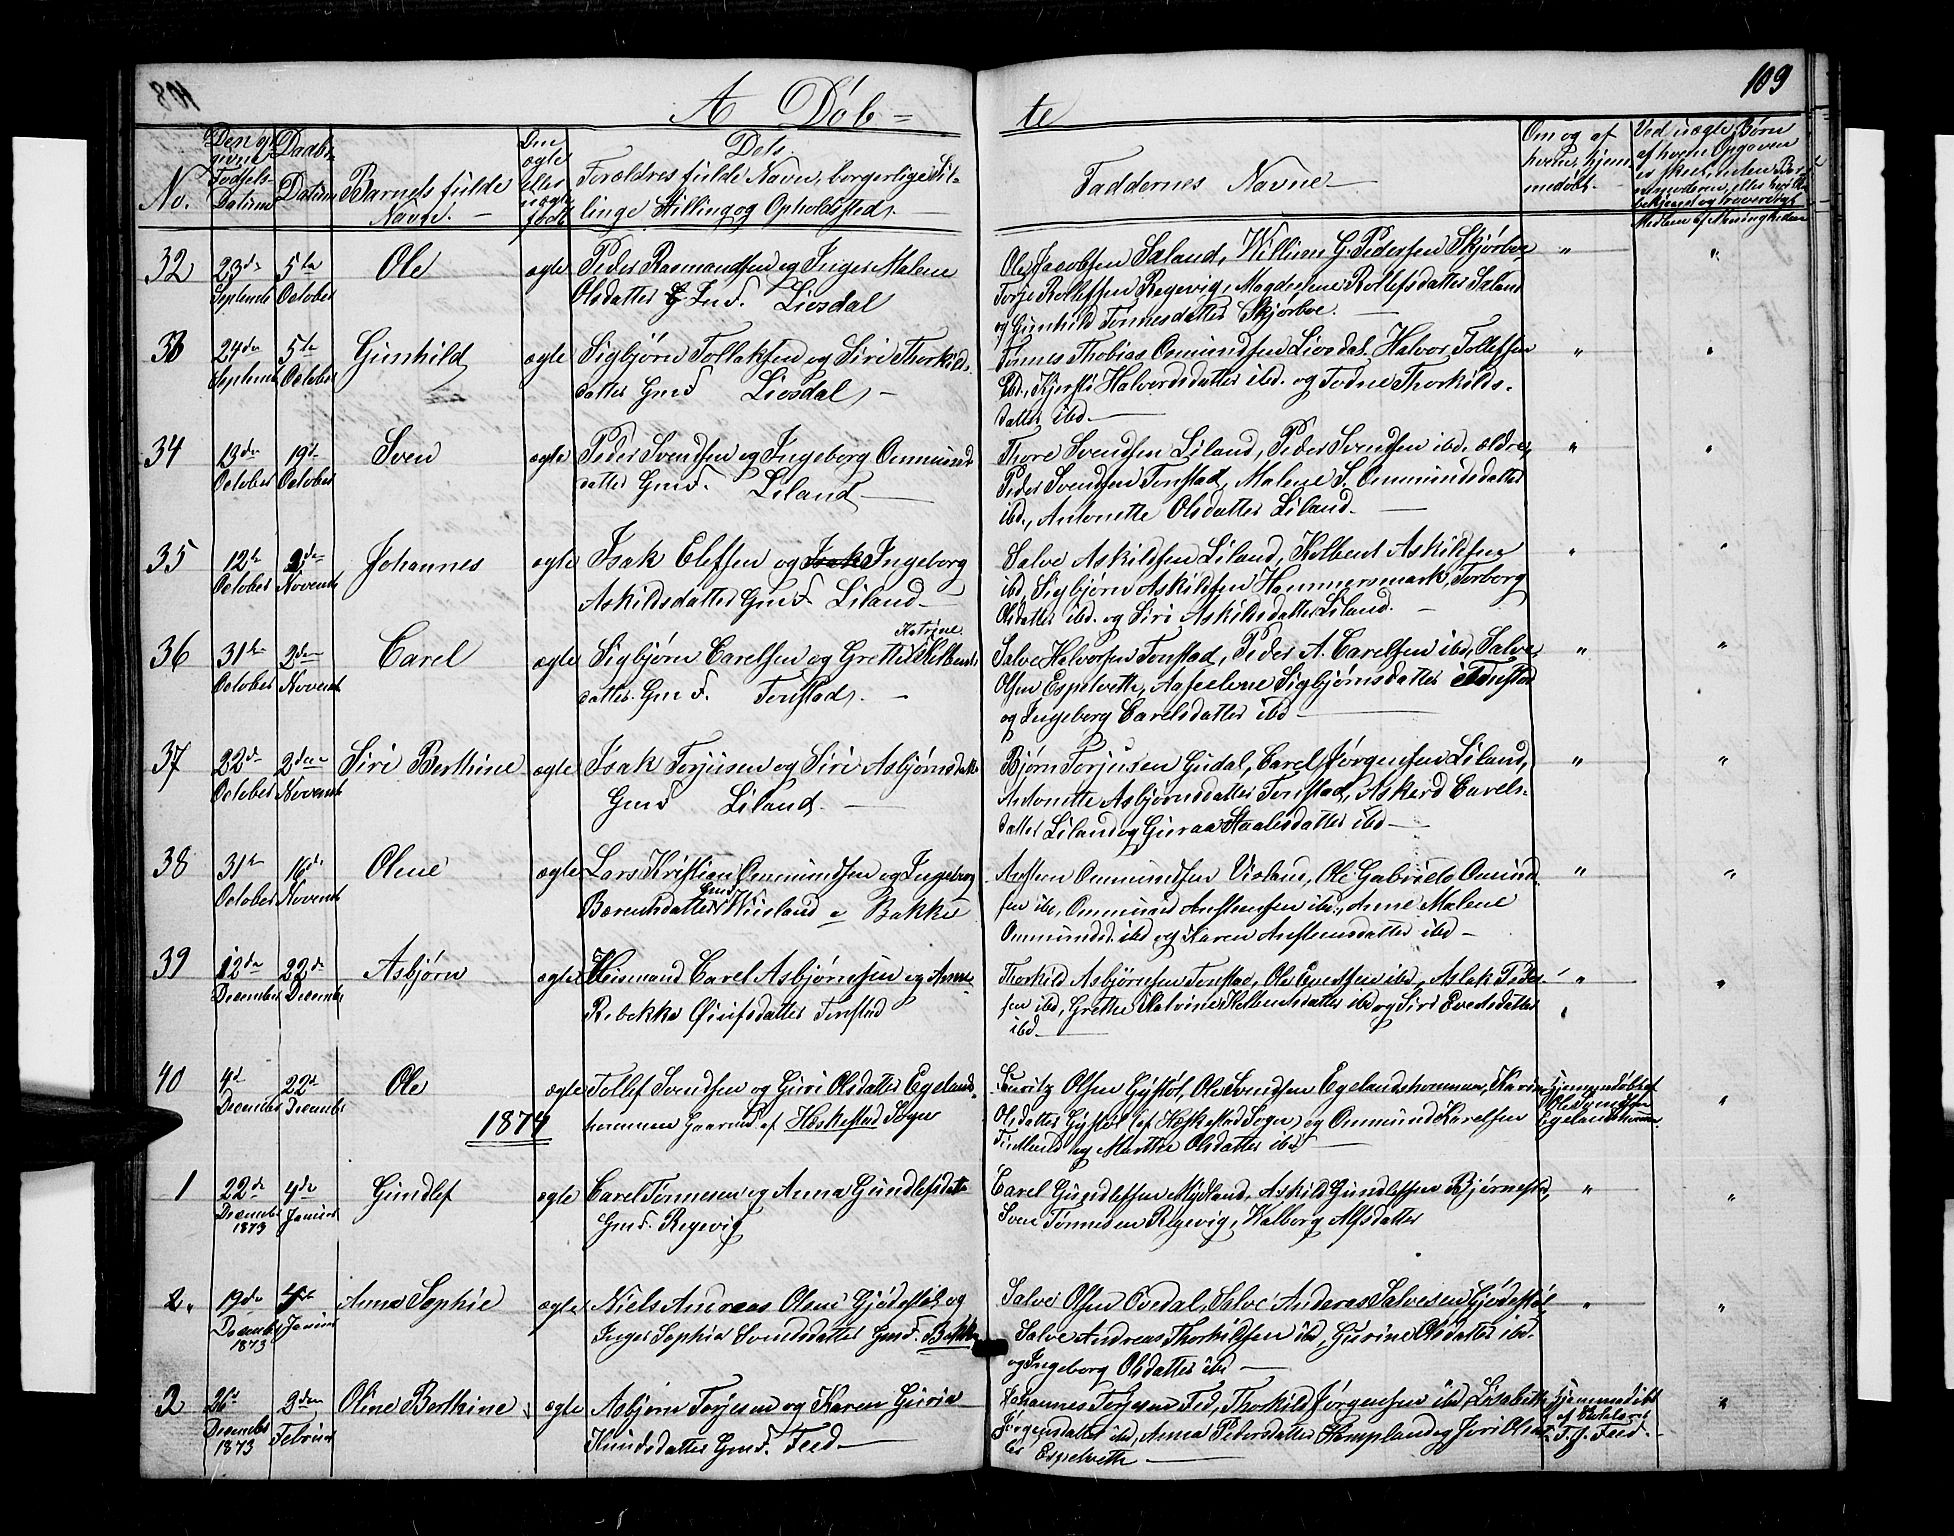 108
109
A Døb=
te
No.
Den opgivne Fødsels-Datum
Daabs-Datum
Barnets fulde Navn.
Om ægte eller uægte født
Dets Forældres fulde Navn, borgerlige Stillinge og Opholdssted.
Faddernes Navne
Om og af hvem hjemmedøbt
Ved uægte Børn af hvem Opgaven er skeet, uden Barnemoderen, eller hvilke bekjend og troværdigt Medlem af Menigheden
32 23de Septembr 5te October Ole ægte
Peder Rasmundsen og Inger Malene
Olsdatter Gmd. Liosdal
Ole Jacobsen Saland, William G. Pedersen Skjørboe
Torje Rollefsen Regevig, Magdelene Rollefsdatter Saland
og Gunhild Tønnesdatter Skjørboe.
" "
33 24de Septembr 5te October Gunhild ægte
Sigbjørn Tollaksen og Siri Thorkilds
datter Gmd Liosdal
Tønnes Thobias Osmundsen Liosdal, Halvor Tollefsen
ibd., Kjersti Halvordsdatter ibd. og Todne Thorkilds-
datter ibd.
" "
34 13de October 19de October Sven ægte
Peder Svendsen og Ingeborg Ommund
datter Gmd. Liland
Thore Svendsen Liland, Peder Svendsen ibd. ældre,
Peder Svendsen Tonstad, Malene S. Ommundsdatter
ibd., Antonette Olsdatter Liland.
" "
35 12te October 2de Novembr Johannes ægte
Isak Elefsen og Isak Ingeborg
Askildsdatter Gmd. Liland
Salve Askildsen Liland, Kolbent Askildsen
ibd., Sigbjørn Askildsen Hammersmark, Torborg
Olsdatter ibd. og Siri Askildsdatter Liland.
" "
36 31te October 2den Novembr Carel ægte
Katrine
Sigbjørn Carelsen og Grethe Kolbents
datter. Gmd. Tonstad.
Salve Halvorsen Tonstad, Peder A. Carelsen ibd, Salve
Olsen Espelveth, Aaseelene Sigbjørnsdatter Tonstad
og Ingeborg Carelsdatter ibd
" "
37 22de October 2den Novembr Siri Berthine ægte
Isak Torjusen og Siri Asbjørnsdatr
Gmd Liland.
Bjørn Torjusen Gudal, Carel Jørgensen Liland,
Antonette Asbjørnsdatter Tonstad, Askerd Carels-
datter Liland og Guraa Staalesdatter ibd
" "
38 31te October 16de Novembr Olene ægte
Lars Kristian Ommundsen og Ingeborg
Gmd
Bærentsdatter Viisland a Bakke
Austen Ommundsen Violand, Ole Gabriels Omund
sen ibd, Ommund Austensen ibd., Anne Malene
Ommundsd. ibd og Karen Austensdatter ibd
" "
39 12de December 22de Decembr Asbjørn ægte
Huismand Carel Asbjørnsen og Anne
Rebekka Osufsdatter Tonstad
Thorkild Asbjørnsen Tonstad, Ole Evertsen ibd, Aslak Peder-
sen ibd, Grethe Katrine Kolbentsdatter ibd og Siri Evertsdatter
ibd
" "
40 4de December 22de Decembr Ole ægte
Tollef Svendsen og Guri Olsdatter Egelands-
hommen Gaarmd. af Heskestad Sogn
Lauritz Olsen Gystøl, Ole Svendsen Egelandshommen, Karen
Olsdatter Gystøl (af Heskestad Sogn) og Ommund Karelsen
Findland og Marthe Olsdatter ibd
Hjemmedøbt af Ole Svendsen Egelandshommen
"
1874
1 22de Decembr 1873 4de Januar Gundlef ægte
Carel Tønnesen og Anna Gundlefsdatr
Gmd. Regevig
Carel Gundlefsen Mydland, Askild Gundlefsen Bjørnest,
Sven Tønnesen Regevig, Valborg Alfsdatter
" "
2. 19de Decembr 1873 4de Januar Anna Sophie ægte
Niels Andreas Olsen Gjødestøl og
Inger Sophia Svendsdatter Gmd. Bakke
Salve Olsen Ovedal, Salve Andreas Salvesen Gjødestøl,
Salve Andreas Thorkildsen ibd, Gurine Olsdatter ibd.
og Ingeborg Olsdatter ibd
" "
3 26de Decembr 1873 2den Februar Oline Berthine ægte
Asbjørn Torjesen og Karen Guria
Knudsdatter Gmd. Feed
Johannes Torjesen Fed, Thorkild Jørgensen ibd, Lisabeth
Jørgensdatter ibd, Anna Pedersdatter Kempland og Jori Olsdat-
ter Espelveth
Hjemmedøbt af T. J. Feed.
"